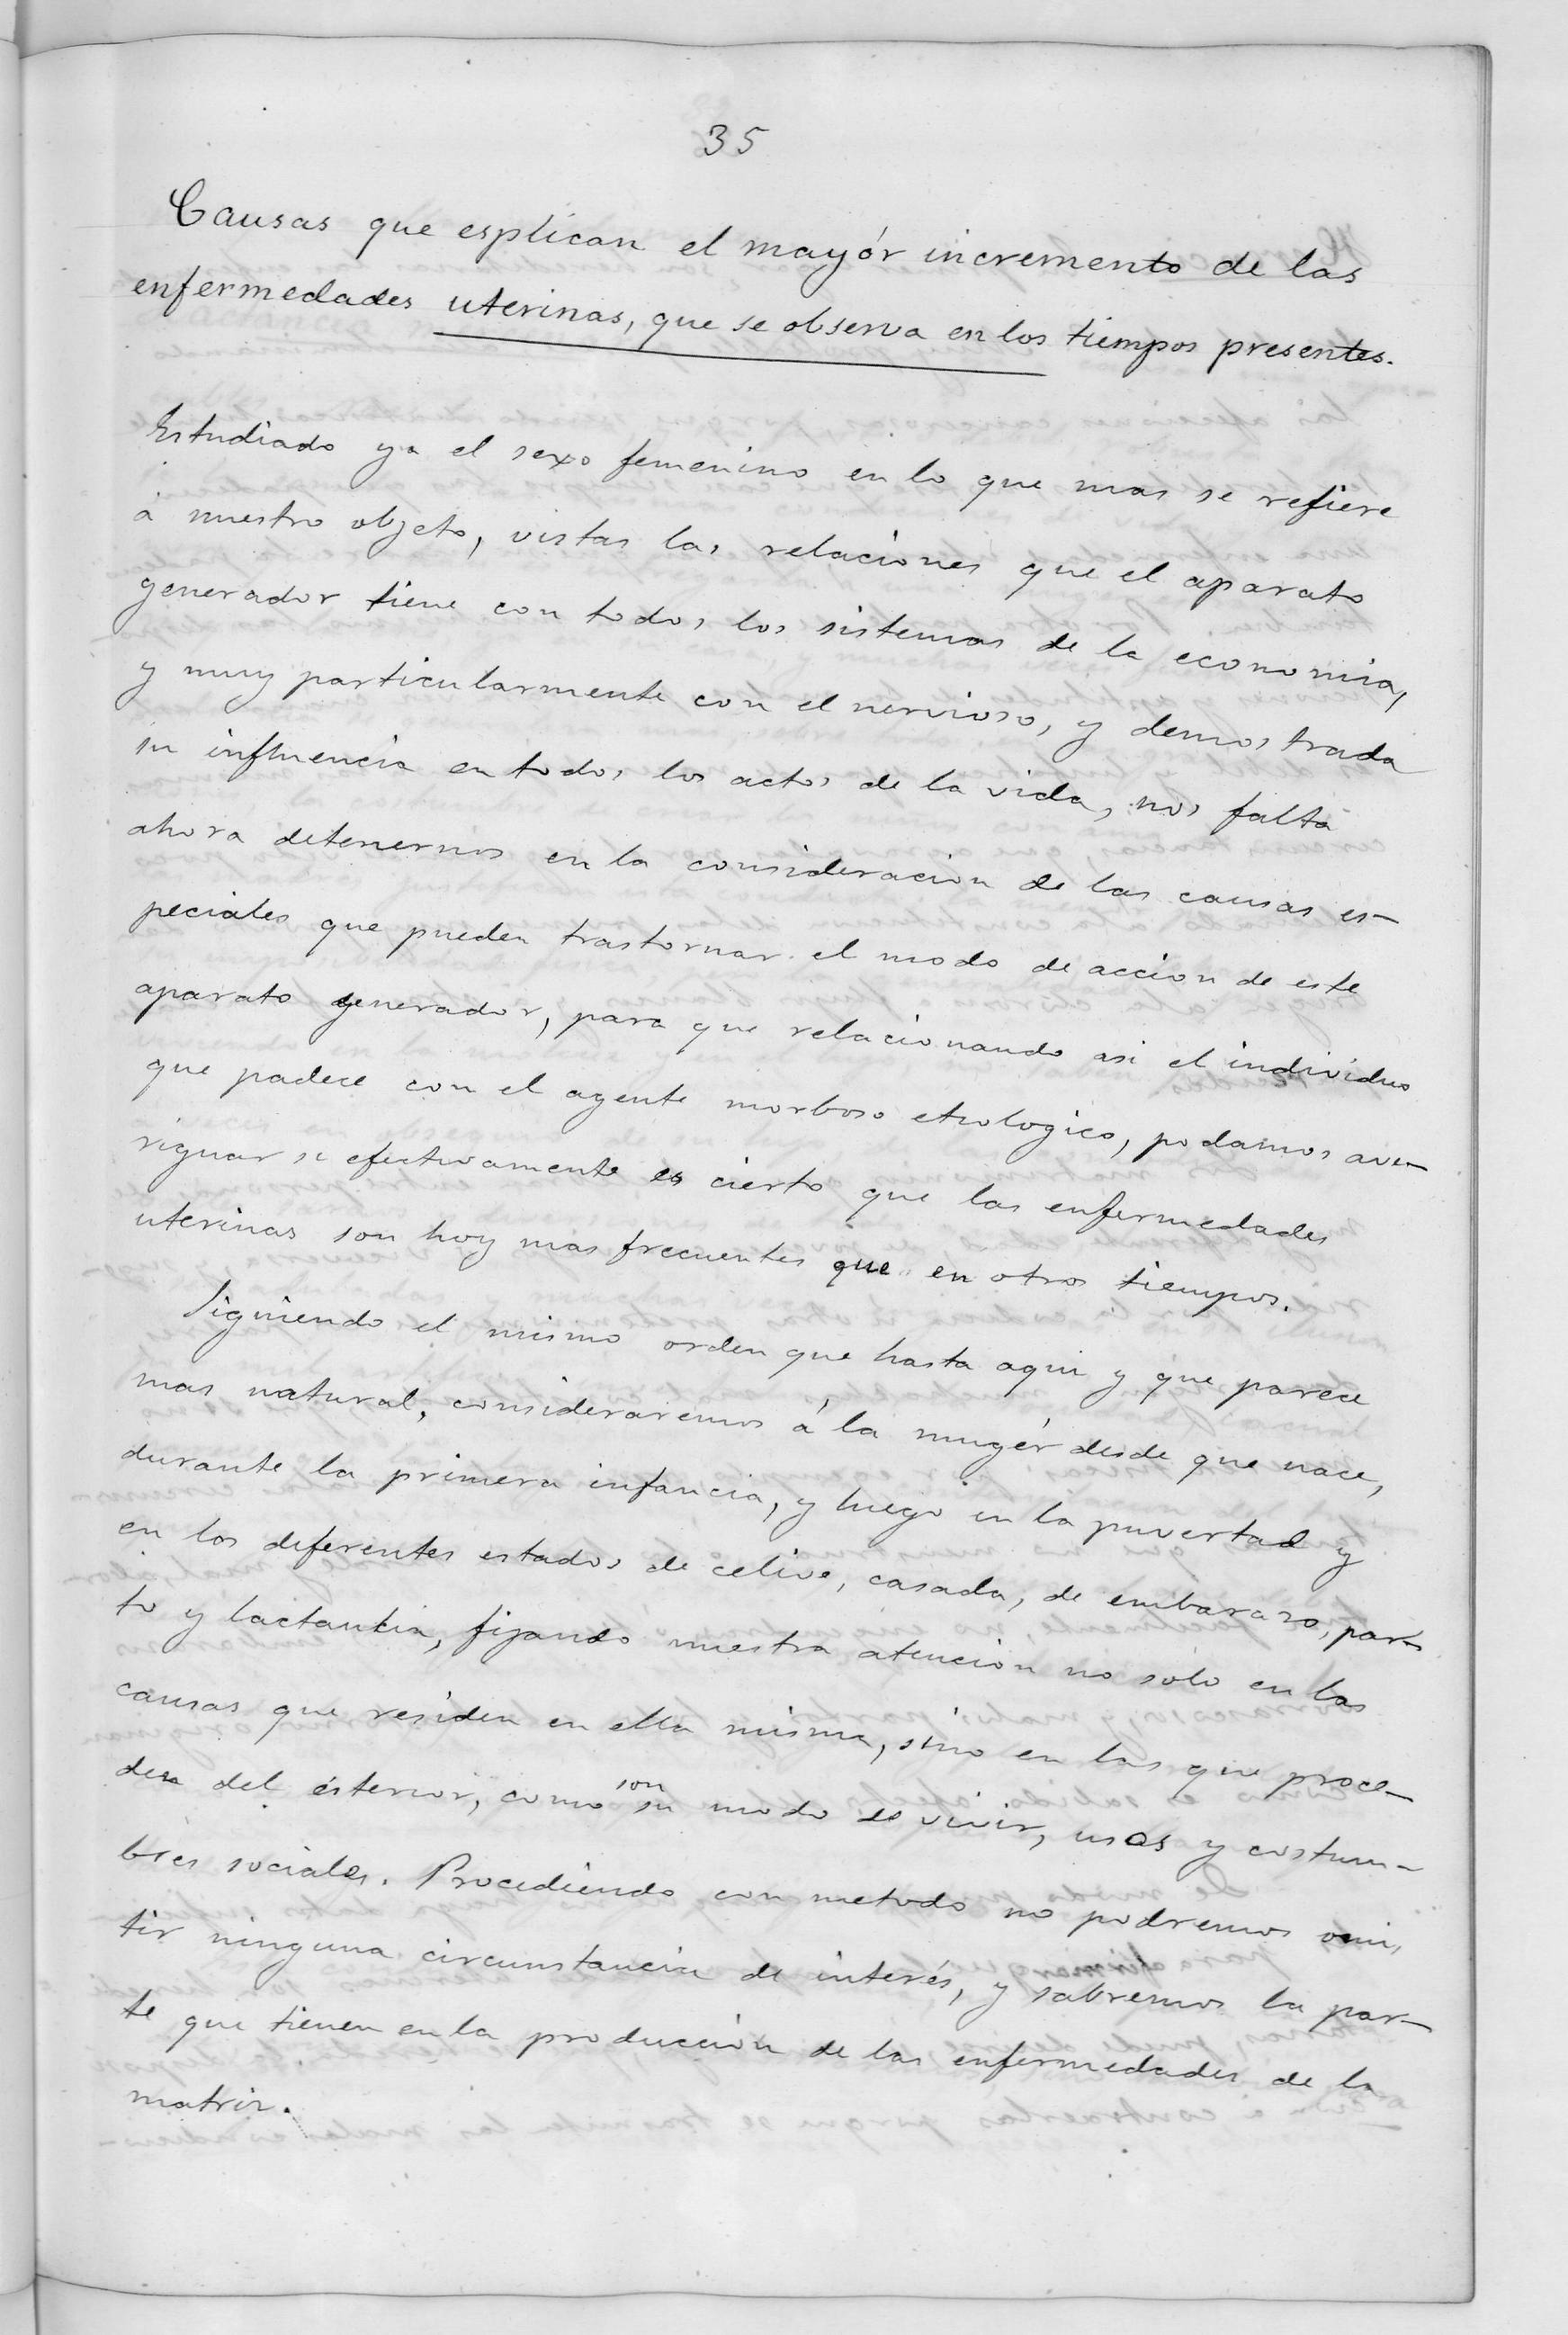 35
Causas que esplican el mayór incremento de las
enfermedades uterinas, que se observa en los tiempos presentes.
Estudiado ya el sexo femenino en lo que mas se refiere
á nuestro objeto, vistas las relaciones que el aparato
generador tiene con todos los sistemas de la economia,
y muy particularmente con el nervioso, y demostrada
su influencia en todos los actos de la vida, nos falta
ahora detenernos en la consideracion de las causas es-
peciales que pueden trastornar el modo de accion de este
aparato generador, para que relacionando asi el individuo
que padece con el agente morboso etiologico, podamos ave-
riguar si efectivamente es cierto que las enfermedades
uterinas son hoy mas frecuentes que en otros tiempos.
Siguiendo el mismo orden que hasta aqui y que parece
mas natural, consideraremos á la mugér desde que nace,
durante la primera infancia, y luego en la puvertad y
en los diferentes estados de celive, casada, de embarazo, par-
to y lactantia, fijando nuestra atencion no solo en las
causas que residen en ella misma, sino en las que proce-
den del ésterior, como son su modo de vivir, usos y costum-
bres sociales. Procediendo con metodo no podremos omi-
tir ninguna circunstancia de interés, y sabremos la par-
te que tienen en la produccion de las enfermedades de la
matriz.